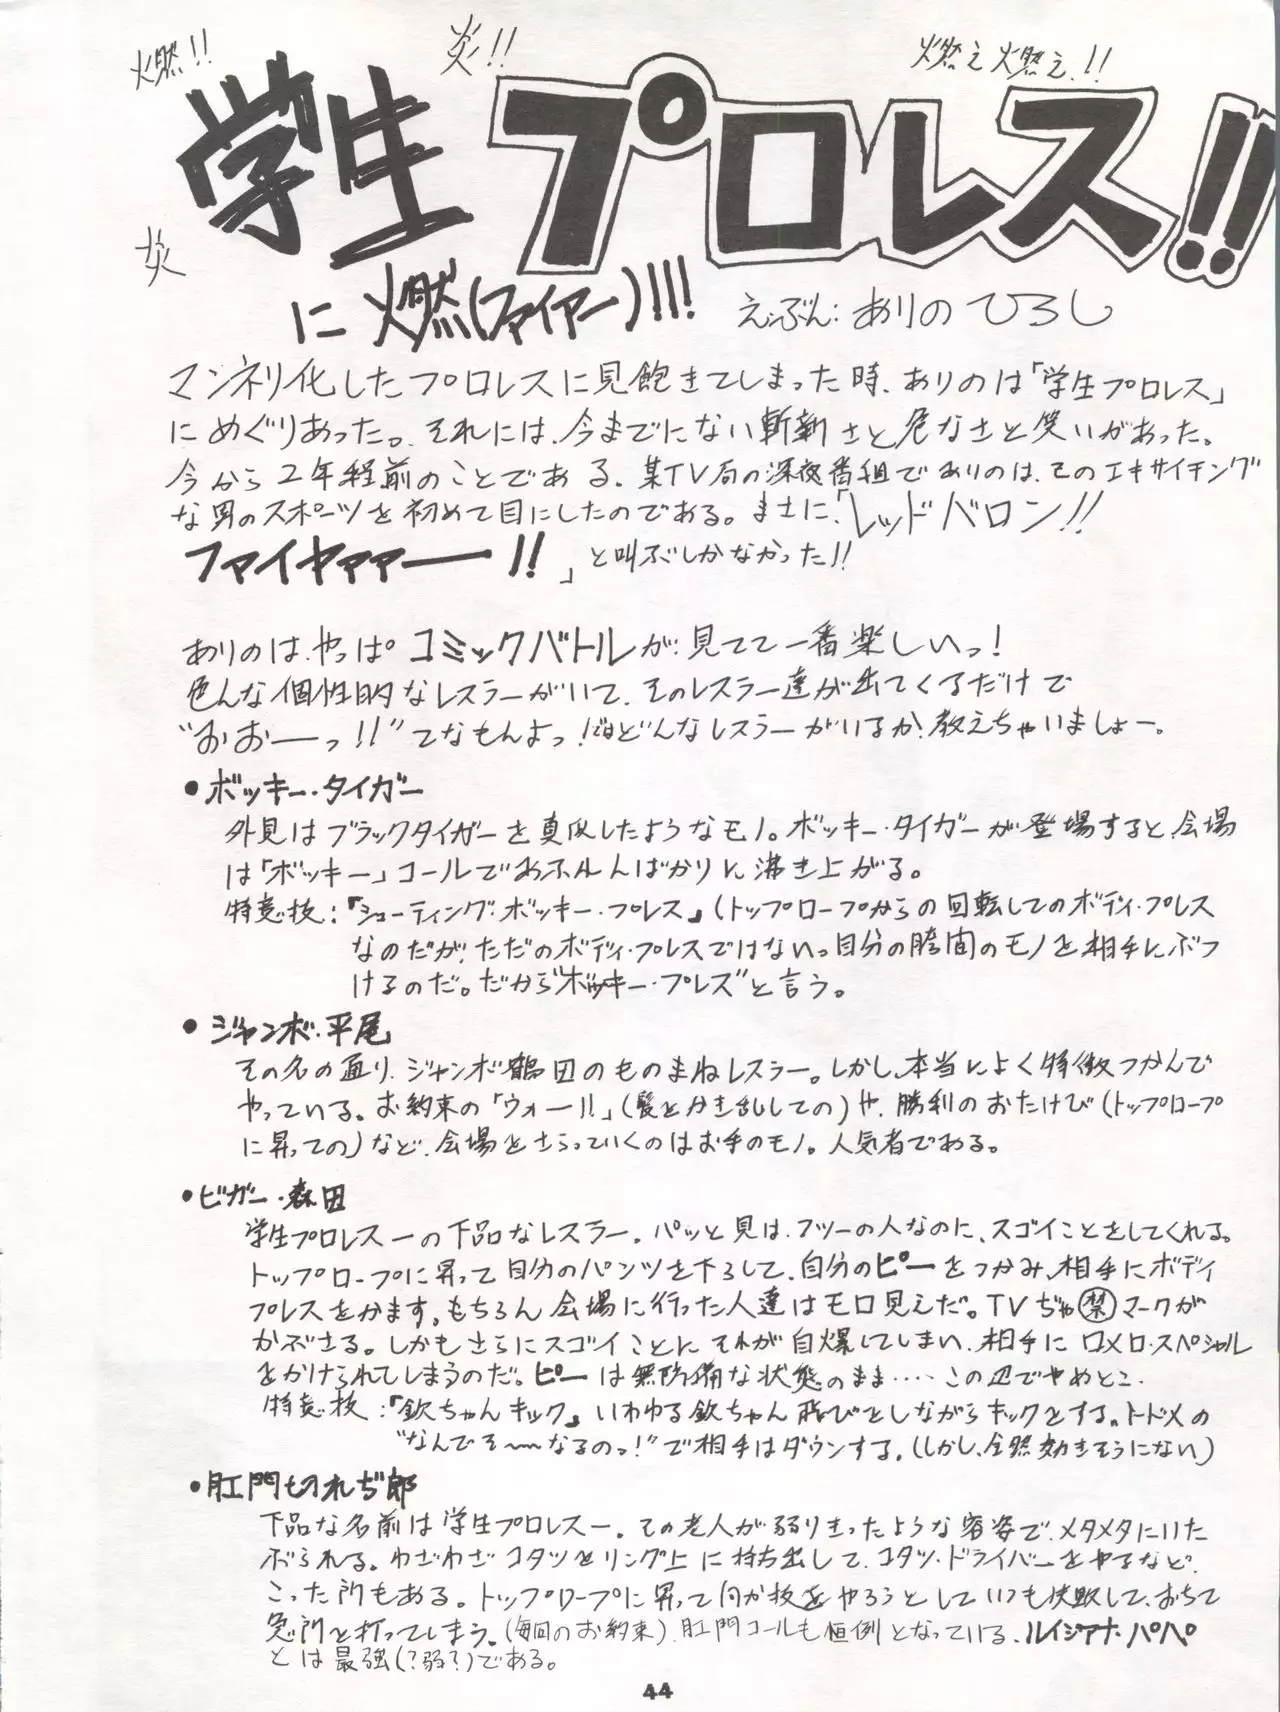 燃!!
炎!!
燃え燃え!!
学生プロレス!!
炎
に燃(ファイアー)!!!
え.ぶん:ありのひろし
マンネリ化したプロレスに見飽きてしまった時、ありのは「学生プロレス」
にめぐりあった。それには、今までにない斬新さと危なさと笑いがあった。
今から2年程前のことである。某TV局の深夜番組でありのは、そのエキサイチング
な男のスポーツを初めて目にしたのである。まさに、「レッドバロン!!
ファイヤァァー!!」と叫ぶしかなかった!!
ありのは、やっぱコミックバトルが、見てて一番楽しいっ!
色んな個性的なレスラーがいて、そのレスラー達が出てくるだけで
"おおーっ!!"てなもんよっ!ではどんなレスラーがいるか、教えちゃいましょー。
●ボッキー・タイガー
外見はブラックタイガーを真似したようなモノ。ボッキー・タイガーが登場すると、会場
は「ボッキー」コールであふれんばかりに沸き上がる。
特意技:『シューティング・ボッキー・プレス』(トップロープからの回転してのボディ・プレス
なのだが、ただのボディ・プレスではないっ自分の胯間のモノを相手にぶつ
けるのだ。だから"ボッキー・プレス"と言う。
●ジャンボ・平尾
その名の通り、ジャンボ鶴田のものまねレスラー。しかし、本当によく特徴つかんで
やっている。お約束の「ウォー!!」(髪をかき乱しての)や、勝利のおたけび(トップロープ
に昇っての)など、会場をさらっていくのはお手のモノ。人気者である。
●ビガー・森田
学生プロレス一の下品なレスラー。パッと見は、フツーの人なのに、スゴイことをしてくれる。
トップロープに昇って自分のパンツを下ろして、自分のピーをつかみ、相手にボディ
プレスをかます。もちろん会場に行った人達はモロ見えだ。TVぢゃ㊝マークが
かぶさる。しかもさらにスゴイことに、それが自爆してしまい、相手にロメロ・スペシャル
をかけられてしまうのだ。ピーは無防備な状態のまま‥‥この辺でやめとこ.
特意技:『欽ちゃんキック』いわゆる欽ちゃん飛びをしながらキックをする。トドメの
"なんでそ〜〜なるのっ!"で相手はダウンする。(しかし、全然効きそうにない)
●肛門切れぢ郎
下品な名前は学生プロレス一。その老人が弱りきったような容姿で、メタメタにいた
ぶられる。わざわざコタツをリング上に持ち出して、コタツ・ドライバーをやるなど、
こった所もある。トップロープに昇って何か技をやろうとしていつも失敗して、おちて
急所を打ってしまう。(毎回のお約束)肛門コールも恒例となっている。ルイジアナ・パペ
とは最強(?弱?)である。
44